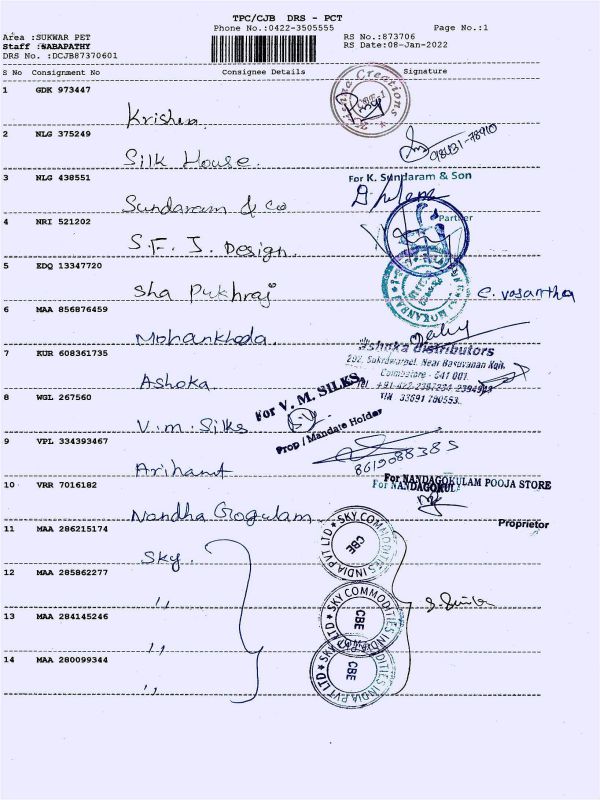 TPC/CJB DRS - PCT
Phone No.:0422-3505555
Page No.:1
Area :SUKWAR PET
RS No.:873706
Staff :SABAPATHY
RS Date:08-Jan-2022
DRS No. :DCJB87370601
S No Consignment No Consignee Details Signature
1 GDK 973447
Krishna
Creations
2 NLG 375249
98431-78910
Silk House.
3 NLG 438551
For K. Sundaram & Son
Sundaram & Co
4 NRI 521202
Partner
S.F. J. Design.
5 EDQ 13347720
Sha Pukhraj
C. Vasantha
6 MAA 856876459
Mohankheda.
7 KUR 608361735
Ashoka distributors
292, Sukrawarpet, Near Basuvanan Koik,
Coimbatore - 641 001.
Ashoka.
Tel +91-422-2397234
8 WGL 267560
For V. M. SILKS,
V.m. Silks
Prop / Mandate Holder
9 VPL 334393467
8619088385
Arihant
10 VRR 7016182
For NANDAGOKULAM POOJA STORE
For NANDAGOKUL
Nandha Gogulam
Proprietor
11 MAA 286215174
Sky.
SKY COMMODITIES INDIA PVT LTD
CBE
12 MAA 285862277
,,
SKY COMMODITIES INDIA PVT LTD
CBE
13 MAA 284145246
,,
SKY COMMODITIES INDIA PVT LTD
CBE
14 MAA 280099344
,,